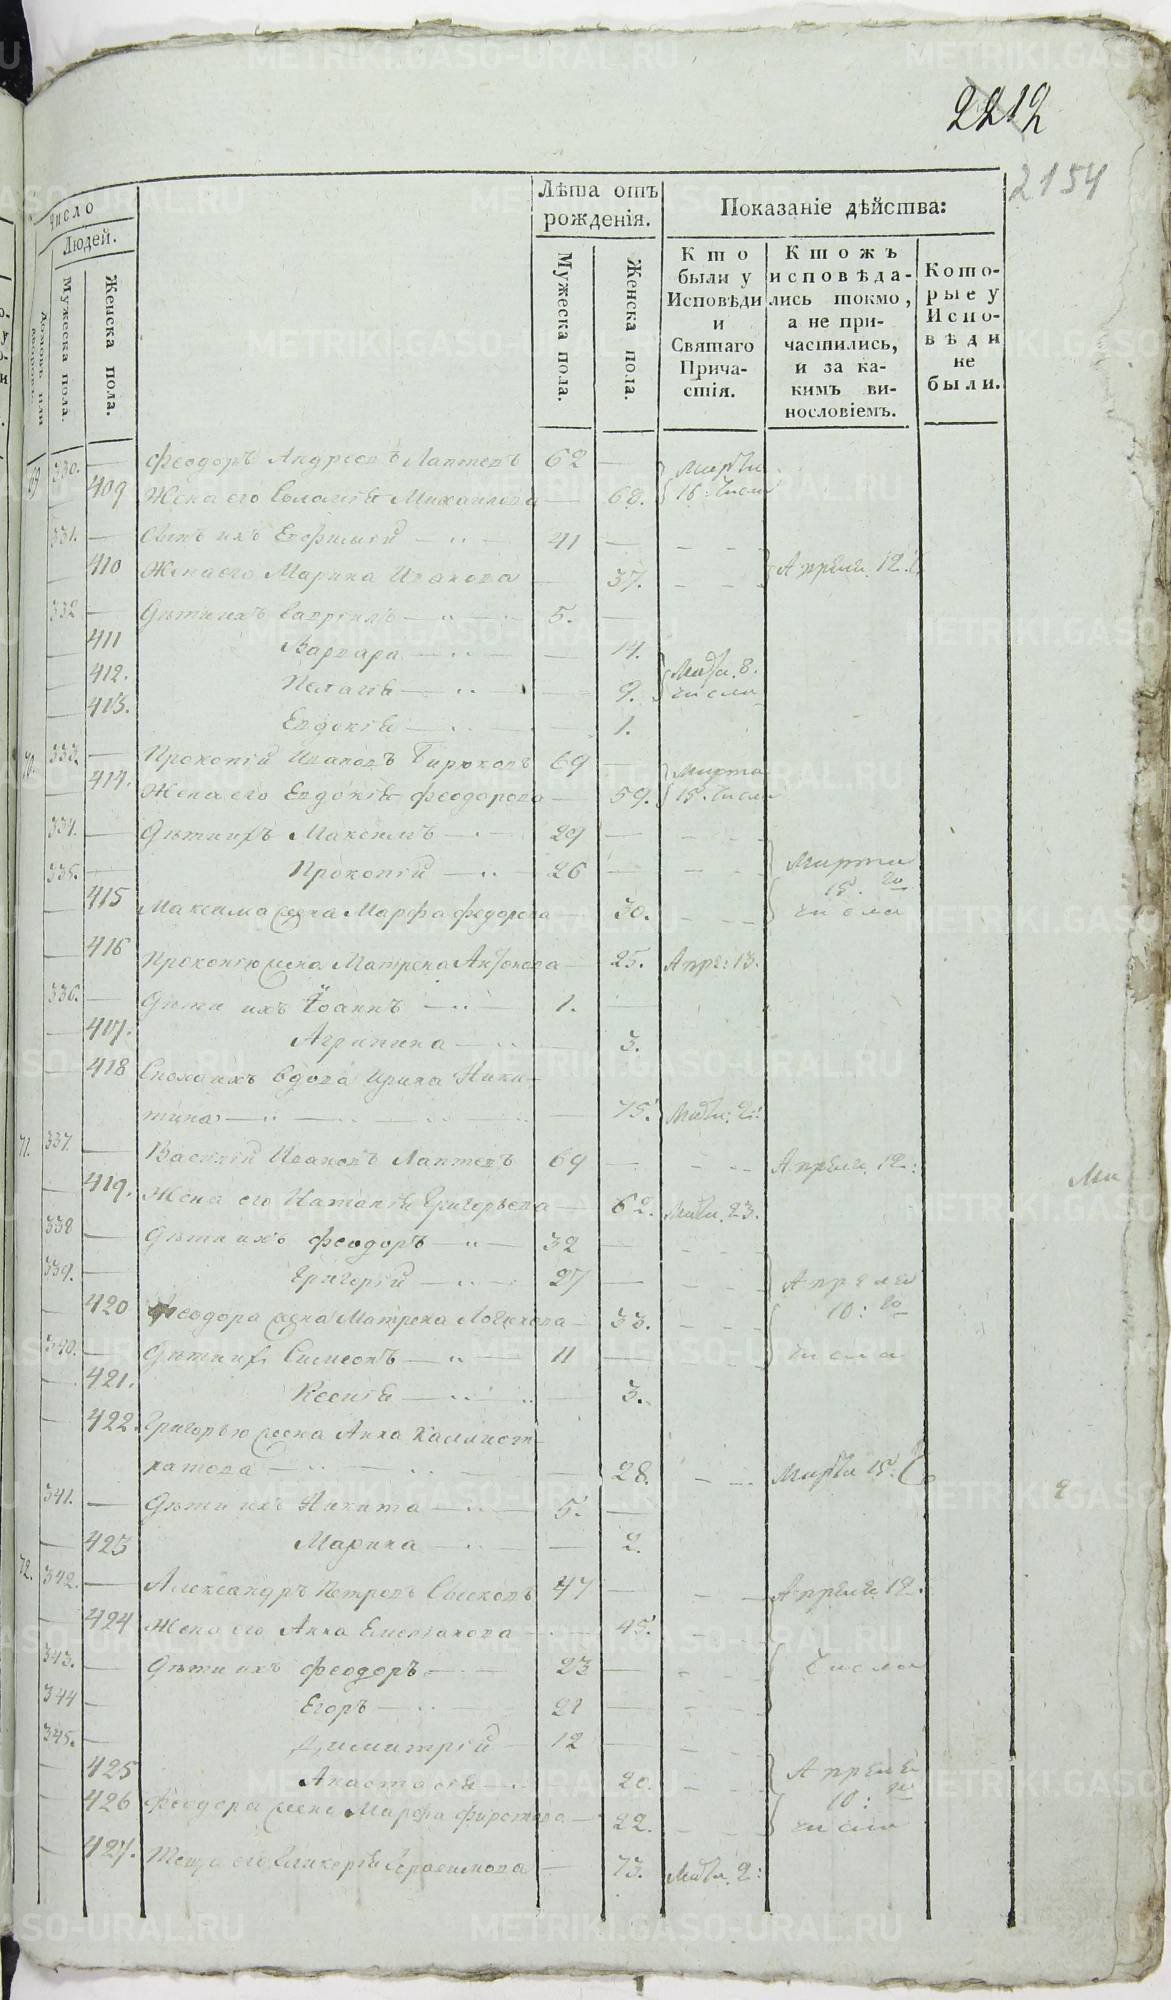 2212
2154
Число
Людей.
Мужеска пола.
Женска пола.
Лѣта отъ рожденія.
Мужеска пола.
Женска пола.
Показаніе дѣйства:
Кто были у Исповѣди и Святаго Прича-стія.
Ктожъ исповѣда-лись токмо, а не при-частились, и за ка-кимъ ви-нословіемъ.
Кото-рые у Испо-вѣди не были.
69 330. — Феодоръ Андреевъ Лаптевъ 62 —
409 Жена его Михаилова — 68. Марта 16: числа
331. — Сынъ ихъ Евфимий 41 —
410 Жена его Марина Иванова — 37. Апреля 12:
332 — Дѣти ихъ Гавріилъ 5. —
411 Варвара — 14.
412. Пелагія — 9. 8. числа
413. Евдокія — 1.
70. 333. — Прокопій Ивановъ Бирюковъ 69 —
414. Жена его Евдокія Феодорова — 59. Марта 15. числа
334. — Дѣти ихъ Максимъ 29 —
335. — Прокопій 26 — Марта 15. го числа
415 Максима жена Марфа Федорова — 30.
416 Прокопію жена Матрена Антонова — 25. Апре: 13.
336. — Дѣти ихъ Іоаннъ 1. —
417. Агрипина — 3.
418 вдова Ирина Ники-
тина — 75.
71. 337. — Василій Ивановъ Лаптевъ 69 — Апреля 12:
419. Жена его Наталія Григорьева — 62. 23.
338 — Дѣти ихъ Феодоръ 32 —
339. — Григорій 27 — Апреля
420 Феодора жена Матрена — 33. 10: го
340. — Дѣти их Симеонъ 11 — числа
421. Ксенія — 3.
422. Григорью жена Анна Каллист-
ратова — 28. Марта 15:
341. — Дѣти ихъ Никита 5. —
423 Марина — 2.
72. 342. — Александръ Петровъ 47 — Апреля 12.
424 Жена его Анна Емельянова — 45.
343. — Дѣти ихъ Феодоръ 23 — числа
344 — Егоръ 21 —
345. — Димитрій 12 —
425 Анастасія — 20. Апреля
426 Феодора жена Марфа — 22. 10: го числа
427. Теща его Гликерія Герасимова — 73.
METRIKI.GASO-URAL.RU